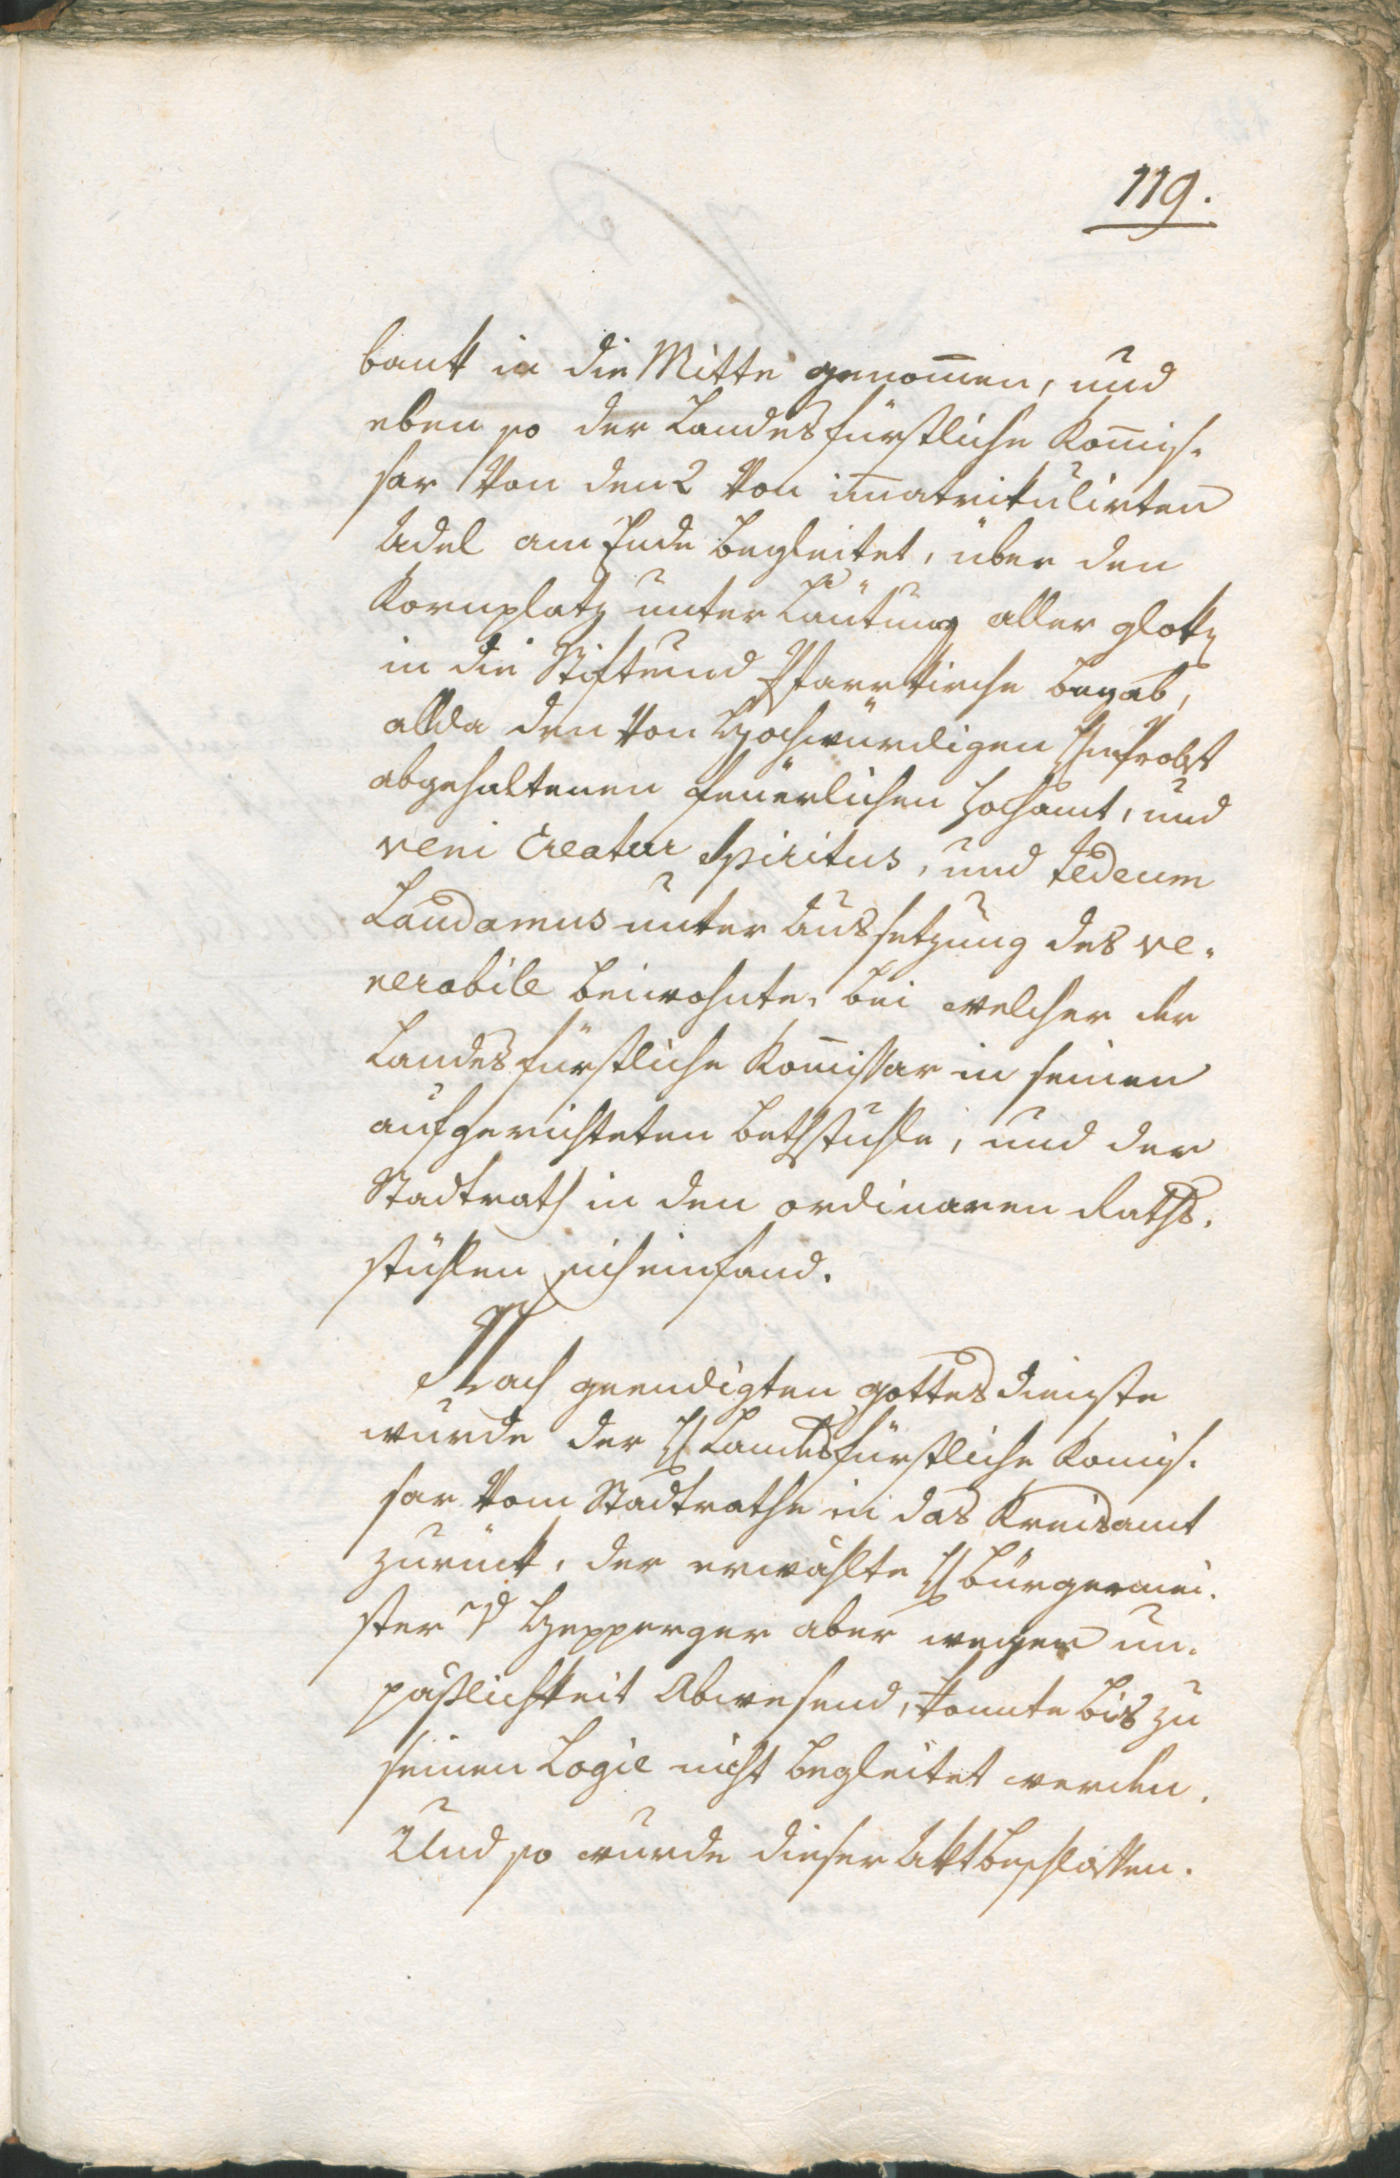 119.
bank in die Mitte genom̄en, und
eben so der Landesfürstliche Kom̄is¬
sar von den 2 von im̄atrikulirten
Adel am Ende begleitet, über den
Kornplatz unter Läutung aller glok
in die Stift und Pfarrkirche begab,
allda den von Hochwürdigen H Probst
abgehaltenen feuerlichen Hochamt, und
veni Creator Spiritus, und tedeum
Laudamus unter Aussetzung des ve¬
nerabile beiwohnte, bei welcher der
Landesfürstliche Kom̄issar in seinen
aufgerichteten Bethstuhle, und der
Stadtrath in den ordinaren Raths¬
stühlen sich einfand.
Nach geendigten gottesdienste
wurde der H Landesfürstliche Kom̄is¬
sar vom Stadtrathe in das Kreisamt
zurück, der erwählte H Bürgermei¬
ster v Hepperger aber wegen un¬
päßlichkeit Abwesend, konnte bis zu
seinen Logie nicht begleitet werden.
Und so wurde dieser Akt beschlossen.